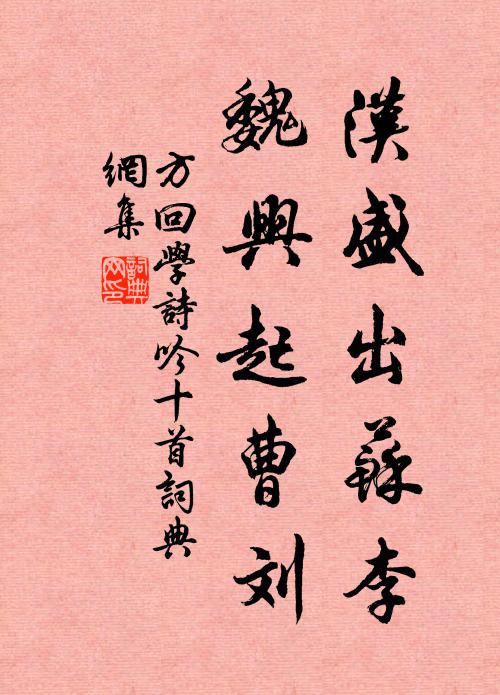 漢盛出蘇李
魏興起曹刘
方回學詩吟十首詞典
網集
詞典網印